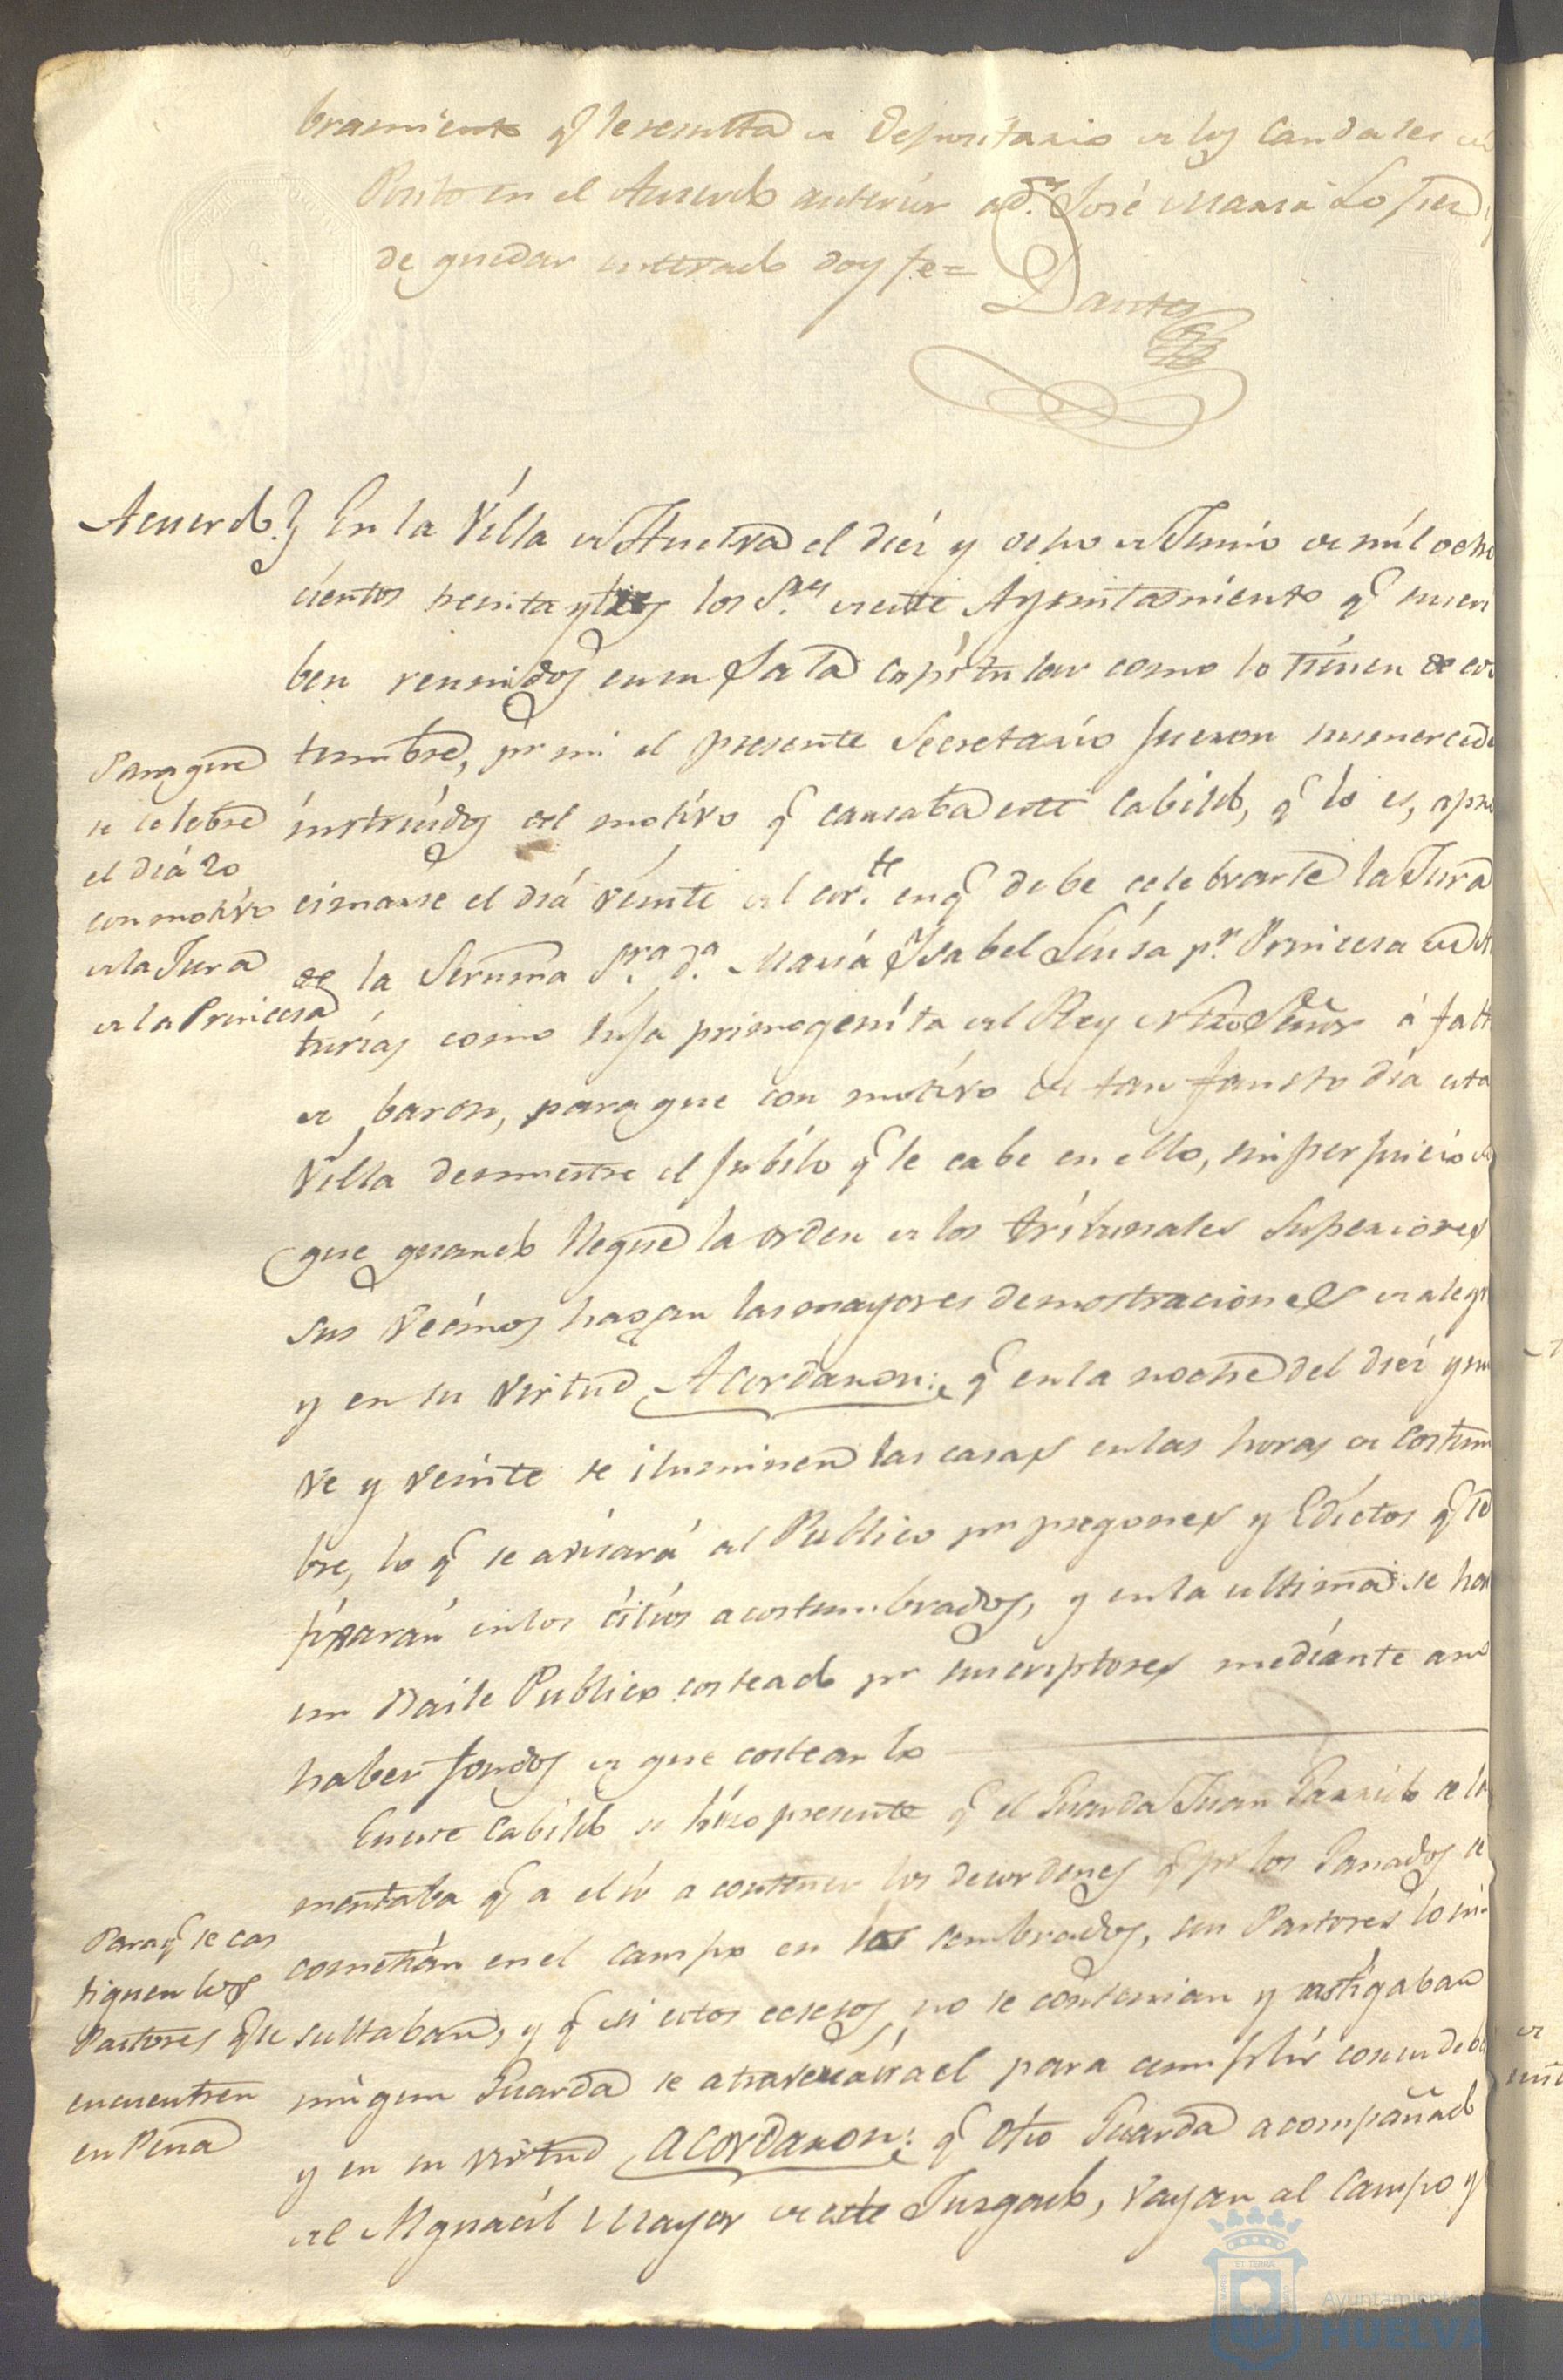 bramiento q.e le resulta de Depositario de los Caudales del
Posito en el Acuerdo anterior a d.n José Maria Lopez
de quedar enterado doy fe=
Dantes
Acuerdo.} En la Villa de Huelva el diez y ocho de Junio de mil ocho
cientos treinta y tres los S.res de este Ayuntamiento q.e suscri
ben reunidos en su Sala Capitular como lo tienen de cos
tumbre, p.r mi el presente Secretario fueron sus mercedes
instruidos del motivo q.e causaba este Cabildo, q.e lo es, aproc
simarse el dia veinte del cor.te en q.e debe celebrarse la Jura
de la Serenma S.ra d.a Maria Ysabel Luisa p.r Princesa de As
turias como hija primogenita del Rey Ntro Señor á falta
de baron, para que con motivo de tan fausto dia esta
Villa demuestre el jubilo q.e le cabe en ello, sin perjuicio de
que quando llegue la orden de los tribunales Superiores
sus Vecinos hagan las mayores demostraciones de alegria
y en su virtud Acordaron: q.e en la noche del diez y nue
ve y veinte se iluminen las casas en las horas de costum
bre, lo q.e se avisará al Publico p.r pregones y Edictos q.e se
fixarán en los citios acostumbrados, y en la ultima se hará
un Baile Publico costeado p.r suscriptores mediante a no
haber fondos de que costearlo
En este Cabildo se hizo presente q.e el Guarda Juan Garrido se la
mentaba q.e a el ir a contener los desordenes q.e p.r los Ganados se
cometian en el campo en los sembrados, sus Pastores lo in
sultaban, y q.e si estos ecsesos no se contenian y castigaban
ningun Guarda se atraveria a el para cumplir con su deber
y en su virtud acordaron: q.e otro Guarda acompañado
del Alguacil Mayor de este Jusgado, vayan al Campo y
Para que
se celebre
el dia 20
con motivo
de la Jura
de la Princesa
Para q.e se cas
tiguen los
Pastores que se
encuentren
en Pena
Ayuntamiento
HUELVA